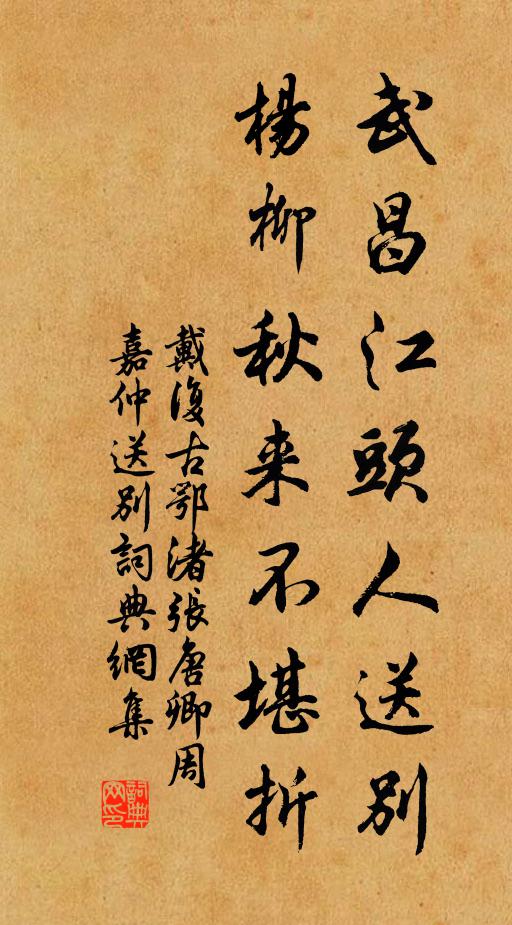 武昌江頭人送别
楊柳秋来不堪折
戴復古鄂渚張唐卿周
嘉仲送别詞典網集
詞典
网印